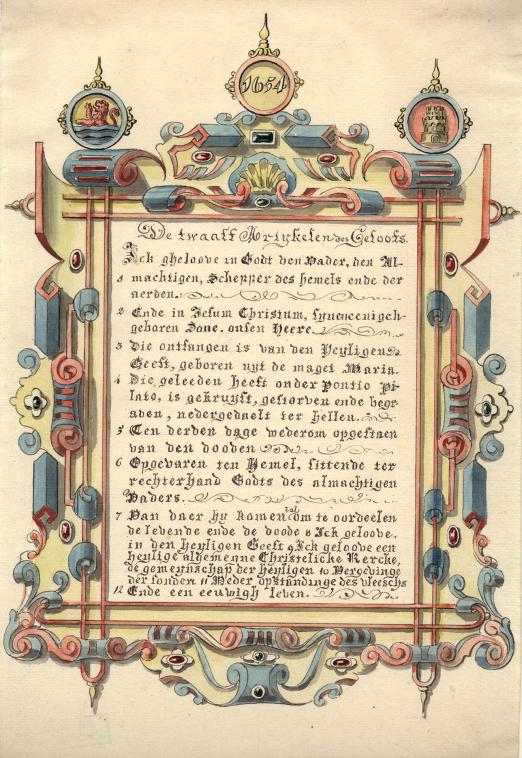 1654
De twaalf Artykelen des Geloofs.
Ick gheloove in Godt den Vader, den Al-
1 machtigen, Schepper des hemels ende der
aerden.
2 Ende in Jesum Christum, synen eenigh-
geboren Sone. onsen Heere.
3 Die ontfangen is van den Heyligen
Geest, geboren uyt de maget Maria.
4 Die geleeden heeft onder Pontio Pi-
lato, is gekruyst, gestorven ende begr-
aven, nedergedaelt ter hellen.
5 Ten derden dage wederom opgestaen
van den dooden
6 Opgevaren ten Hemel, sittende ter
rechterhand Godts des almachtigen
Vaders.
7 Van daer hy komen sal om te oordeelen
de levende ende de doode 8 Ick geloove
in den heyligen Geest 9 Ick geloove een
heylige algemeyne Christelicke Kercke,
de gemeynschap der heyligen 10 Vergevinge
der sonden 11 Weder opstandinge des vleeschs
12 Ende een eeuwigh leven.